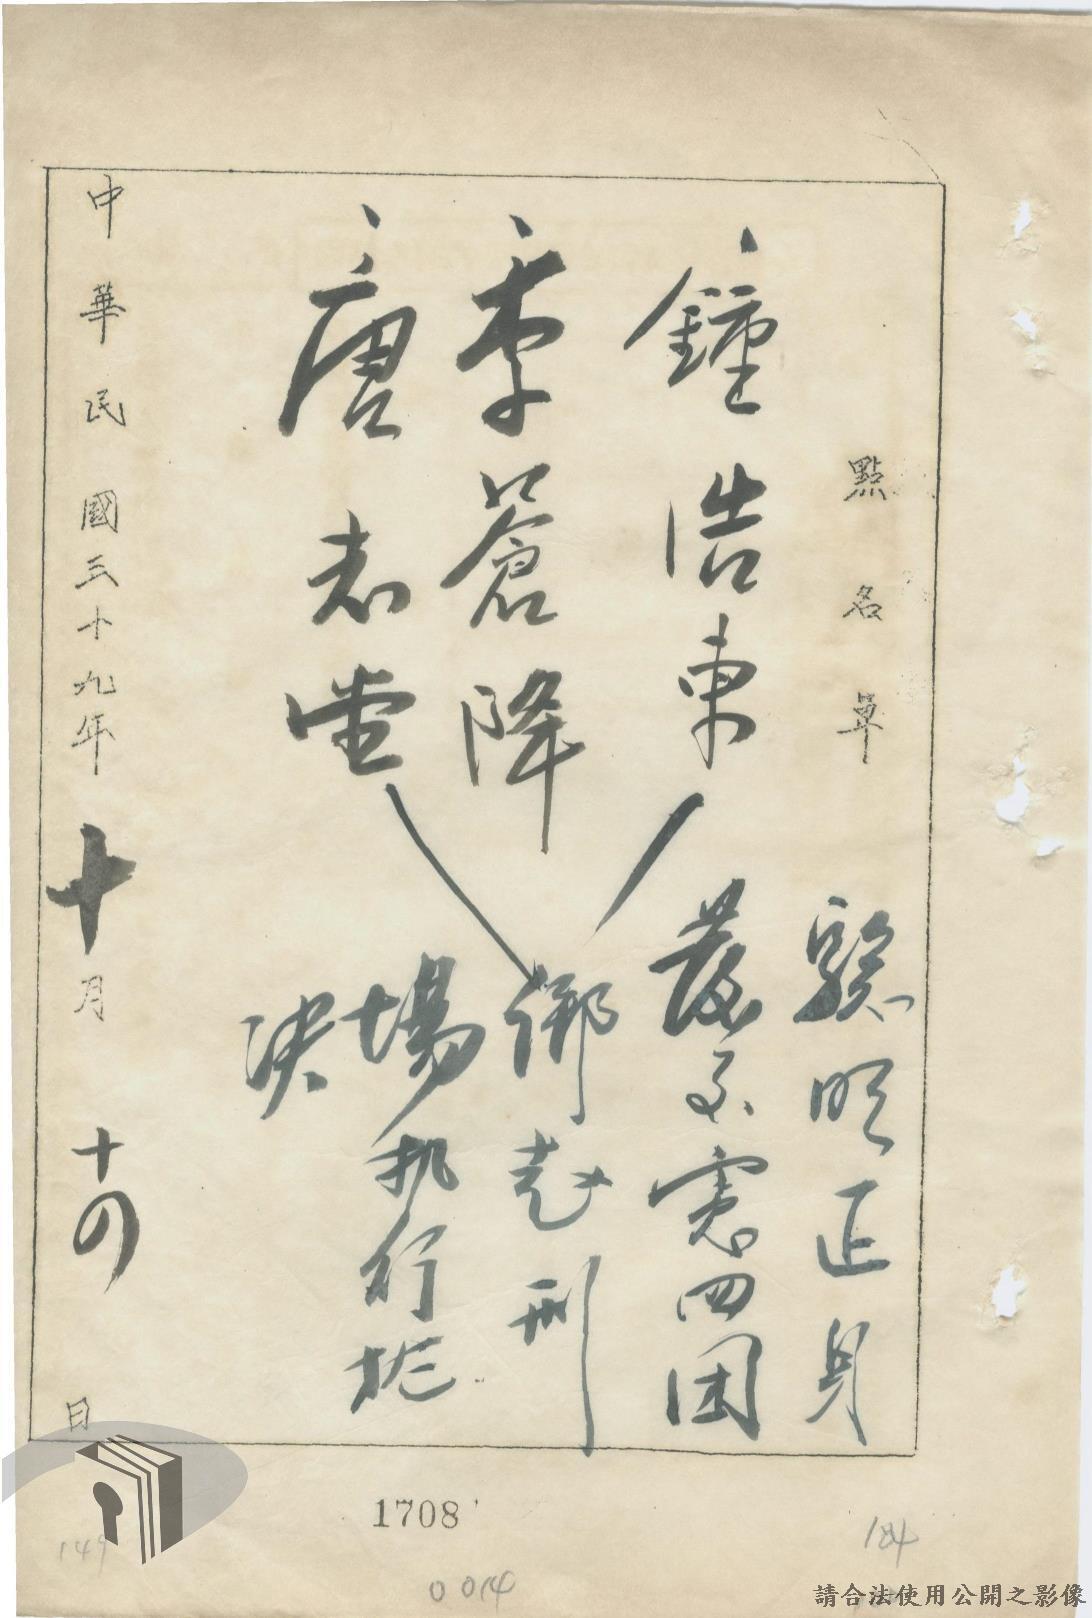 點名單
鍾浩東
李蒼降
唐志堂
驗明正身
發交憲四團
綁赴刑
場执行槍
決
中華民國三十九年十月十四日
1708
184
149
0014
請合法使用公開之影像